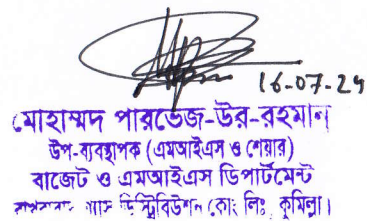 16-07-24
মোহাম্মদ পারভেজ-উর-রহমান
উপ-ব্যবস্থাপক (এমআইএস ও শেয়ার)
বাজেট ও এমআইএস ডিপার্টমেন্ট
গ্যাস ডিস্ট্রিবিউশন কোঃ লিঃ কুমিল্লা।